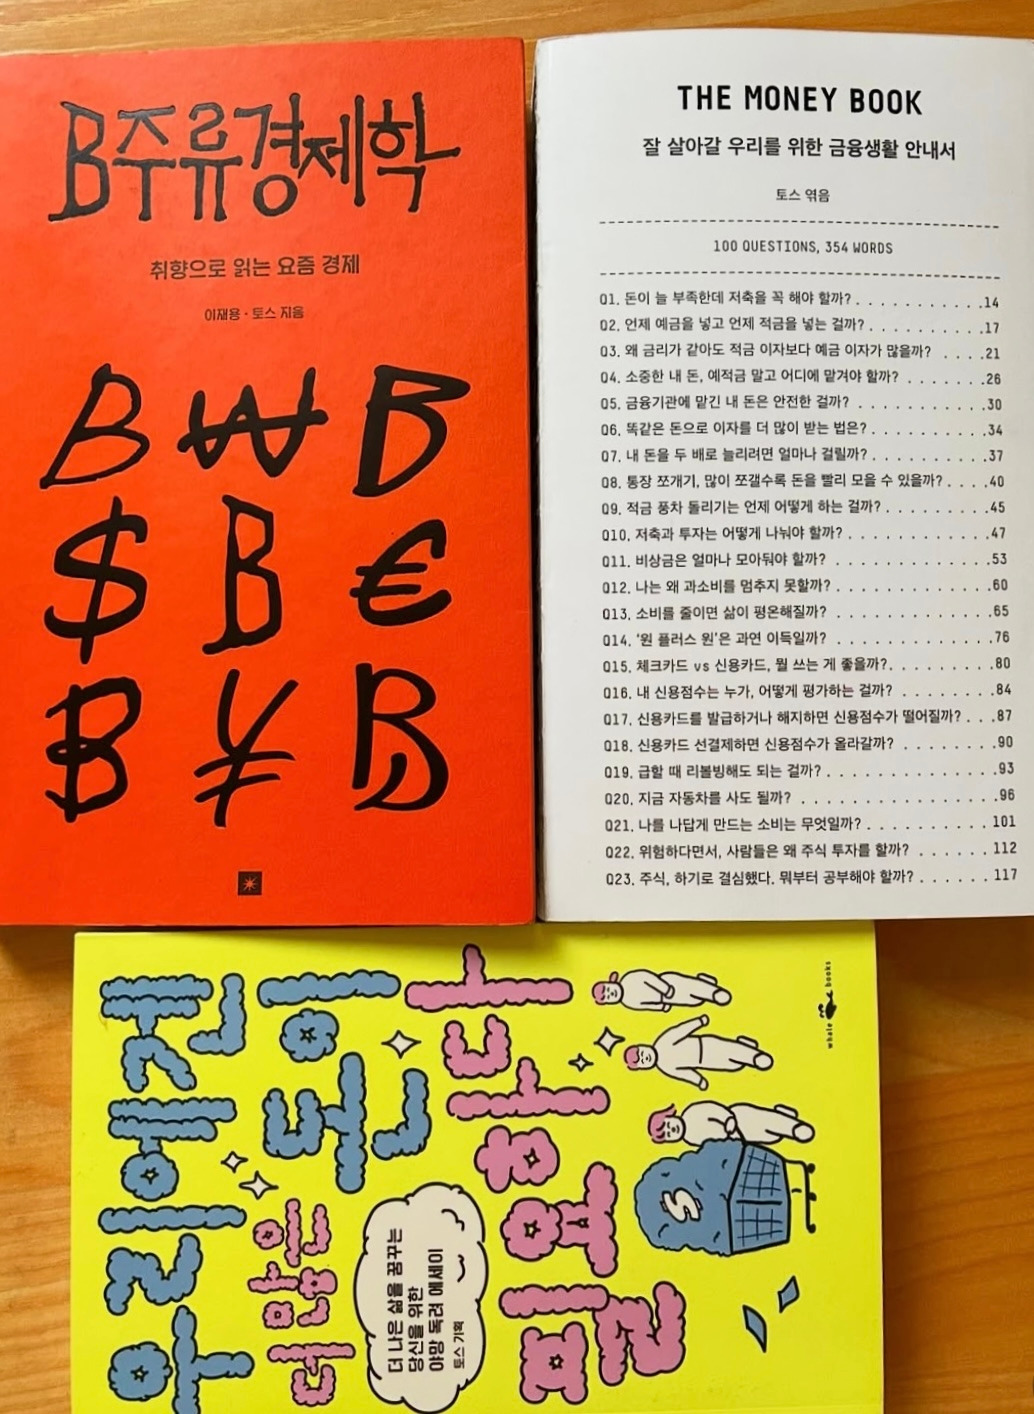 B주류경제학
취향으로 읽는 요즘 경제
이재용·토스 지음
B ₩ B
$ B €
B ¥ B
THE MONEY BOOK
잘 살아갈 우리를 위한 금융생활 안내서
토스 엮음
100 QUESTIONS, 354 WORDS
Q1. 돈이 늘 부족한데 저축을 꼭 해야 할까? . . . . . . . . . . .14
Q2. 언제 예금을 넣고 언제 적금을 넣는 걸까? . . . . . . . . . .17
Q3. 왜 금리가 같아도 적금 이자보다 예금 이자가 많을까? . . . .21
Q4. 소중한 내 돈, 예적금 말고 어디에 맡겨야 할까? . . . . . . .26
Q5. 금융기관에 맡긴 내 돈은 안전한 걸까? . . . . . . . . . . .30
Q6. 똑같은 돈으로 이자를 더 많이 받는 법은? . . . . . . . . . .34
Q7. 내 돈을 두 배로 늘리려면 얼마나 걸릴까? . . . . . . . . . .37
Q8. 통장 쪼개기, 많이 쪼갤수록 돈을 빨리 모을 수 있을까? . . . .40
Q9. 적금 풍차 돌리기는 언제 어떻게 하는 걸까? . . . . . . . . .45
Q10. 저축과 투자는 어떻게 나눠야 할까? . . . . . . . . . . . .47
Q11. 비상금은 얼마나 모아둬야 할까? . . . . . . . . . . . . .53
Q12. 나는 왜 과소비를 멈추지 못할까? . . . . . . . . . . . . .60
Q13. 소비를 줄이면 삶이 평온해질까? . . . . . . . . . . . . .65
Q14. '원 플러스 원'은 과연 이득일까? . . . . . . . . . . . . .76
Q15. 체크카드 vs 신용카드, 뭘 쓰는 게 좋을까?. . . . . . . . .80
Q16. 내 신용점수는 누가, 어떻게 평가하는 걸까? . . . . . . . .84
Q17. 신용카드를 발급하거나 해지하면 신용점수가 떨어질까? . . .87
Q18. 신용카드 선결제하면 신용점수가 올라갈까? . . . . . . . .90
Q19. 급할 때 리볼빙해도 되는 걸까? . . . . . . . . . . . . . .93
Q20. 지금 자동차를 사도 될까? . . . . . . . . . . . . . . . .96
Q21. 나를 나답게 만드는 소비는 무엇일까? . . . . . . . . . . 101
Q22. 위험하다면서, 사람들은 왜 주식 투자를 할까? . . . . . . 112
Q23. 주식, 하기로 결심했다. 뭐부터 공부해야 할까? . . . . . . 117
우리에겐
더 많은 돈이
필요하다
더 나은 삶을 꿈꾸는
당신을 위한
야망 독려 에세이
토스 기획
S
whale books